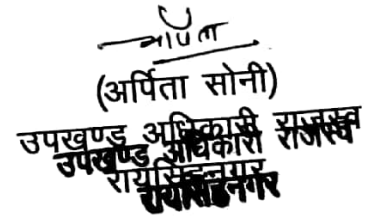 अर्पिता
(अर्पिता सोनी)
उपखण्ड अधिकारी राजस्व
उपखण्ड अधिकारी राजस्व
रायसिंहनगर
रायसिंहनगर